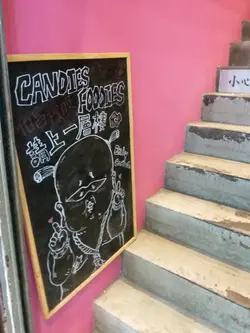 CANDIES
FOODIES
請上一層樓
小心